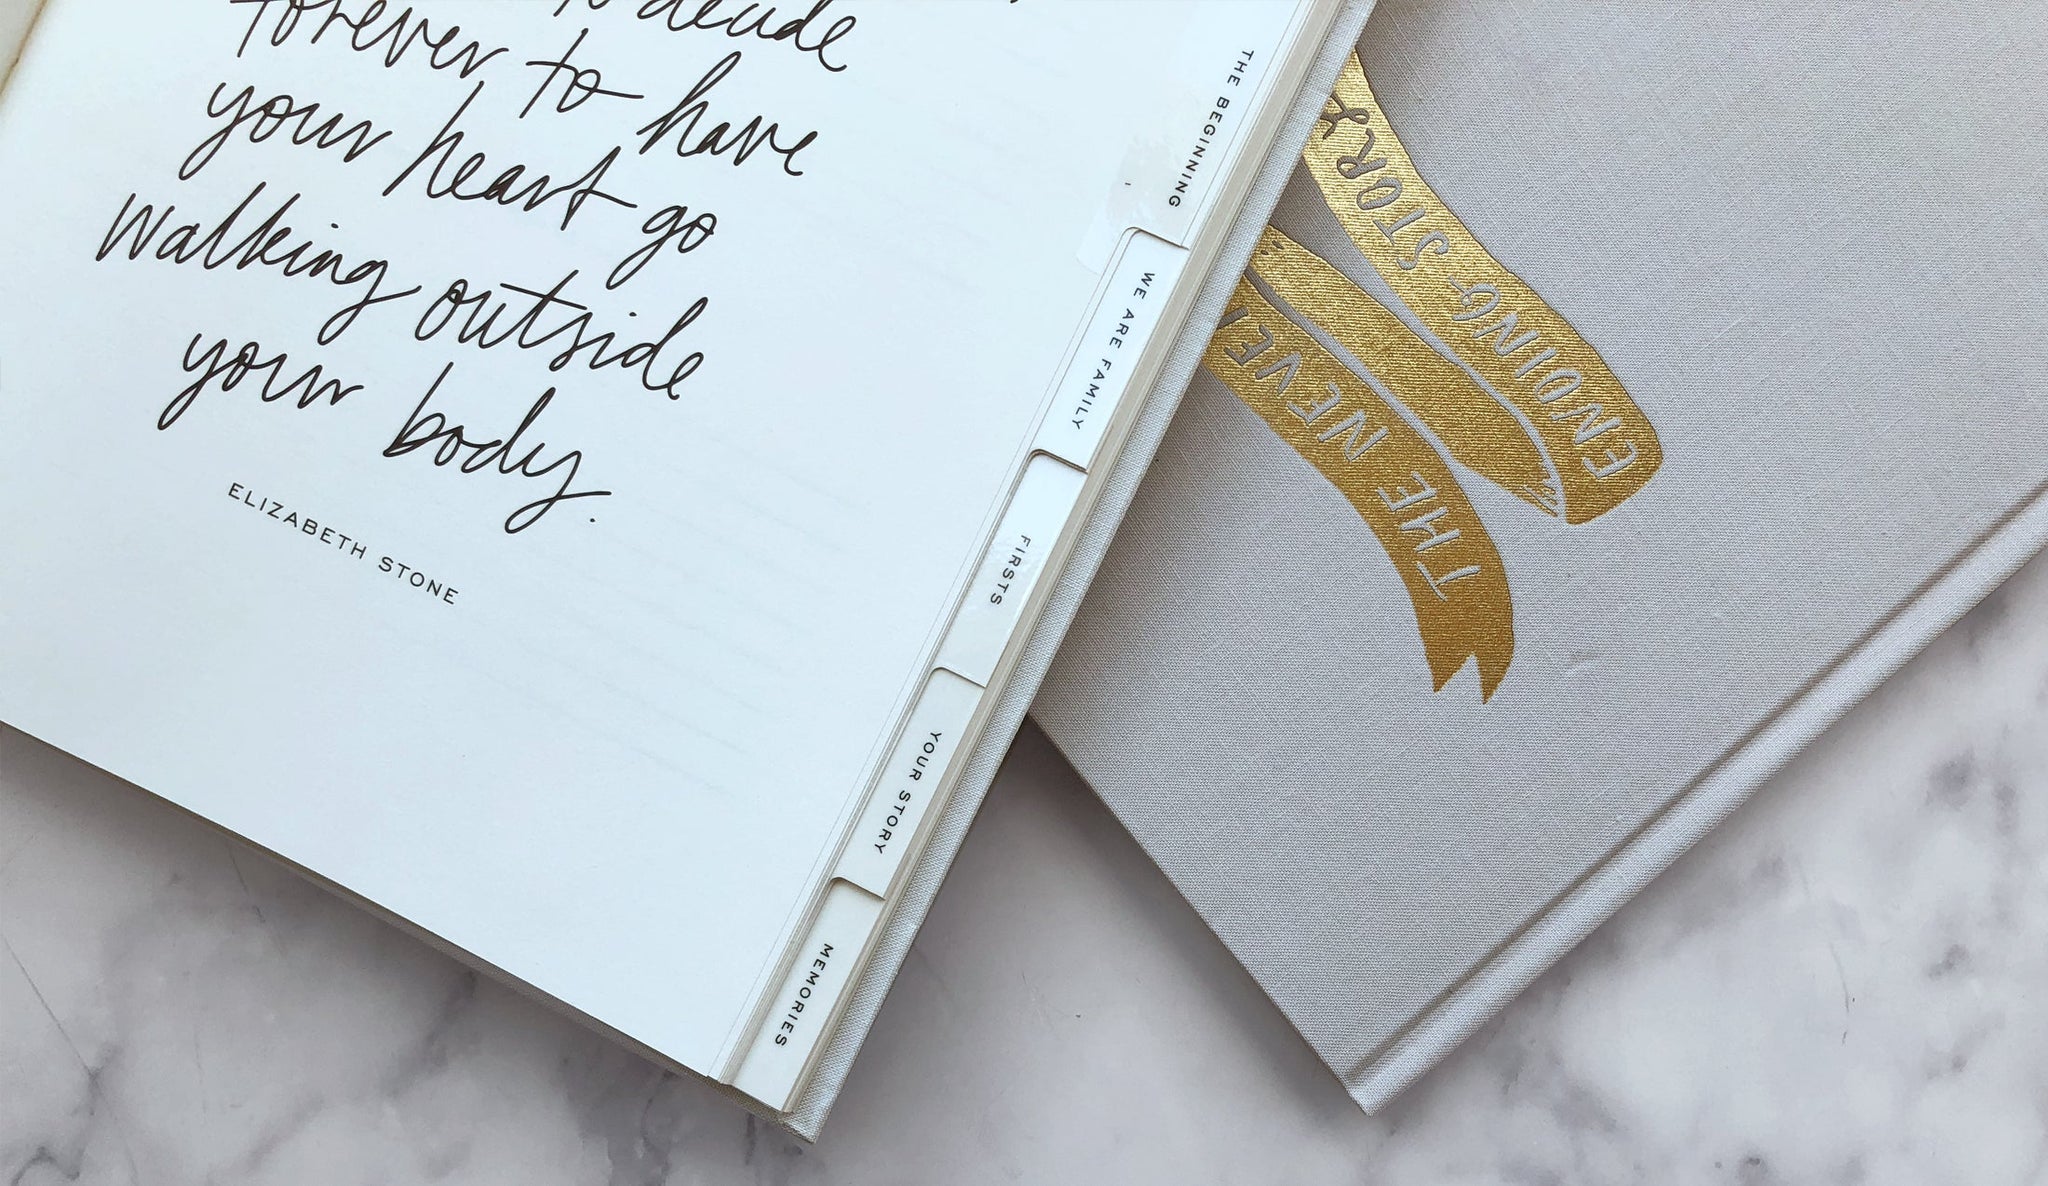 to decide
forever to have
your heart go
walking outside
your body.
ELIZABETH STONE
THE BEGINNING
WE ARE FAMILY
FIRSTS
YOUR STORY
MEMORIES
THE NEVER
ENDING STORY